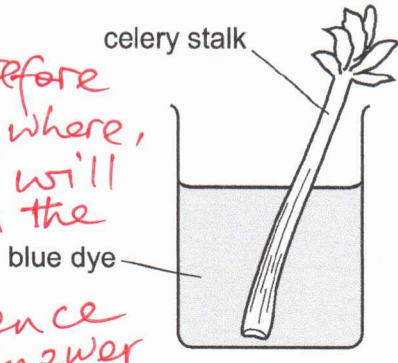 celery stalk
efore
where,
will
the
blue dye
ence